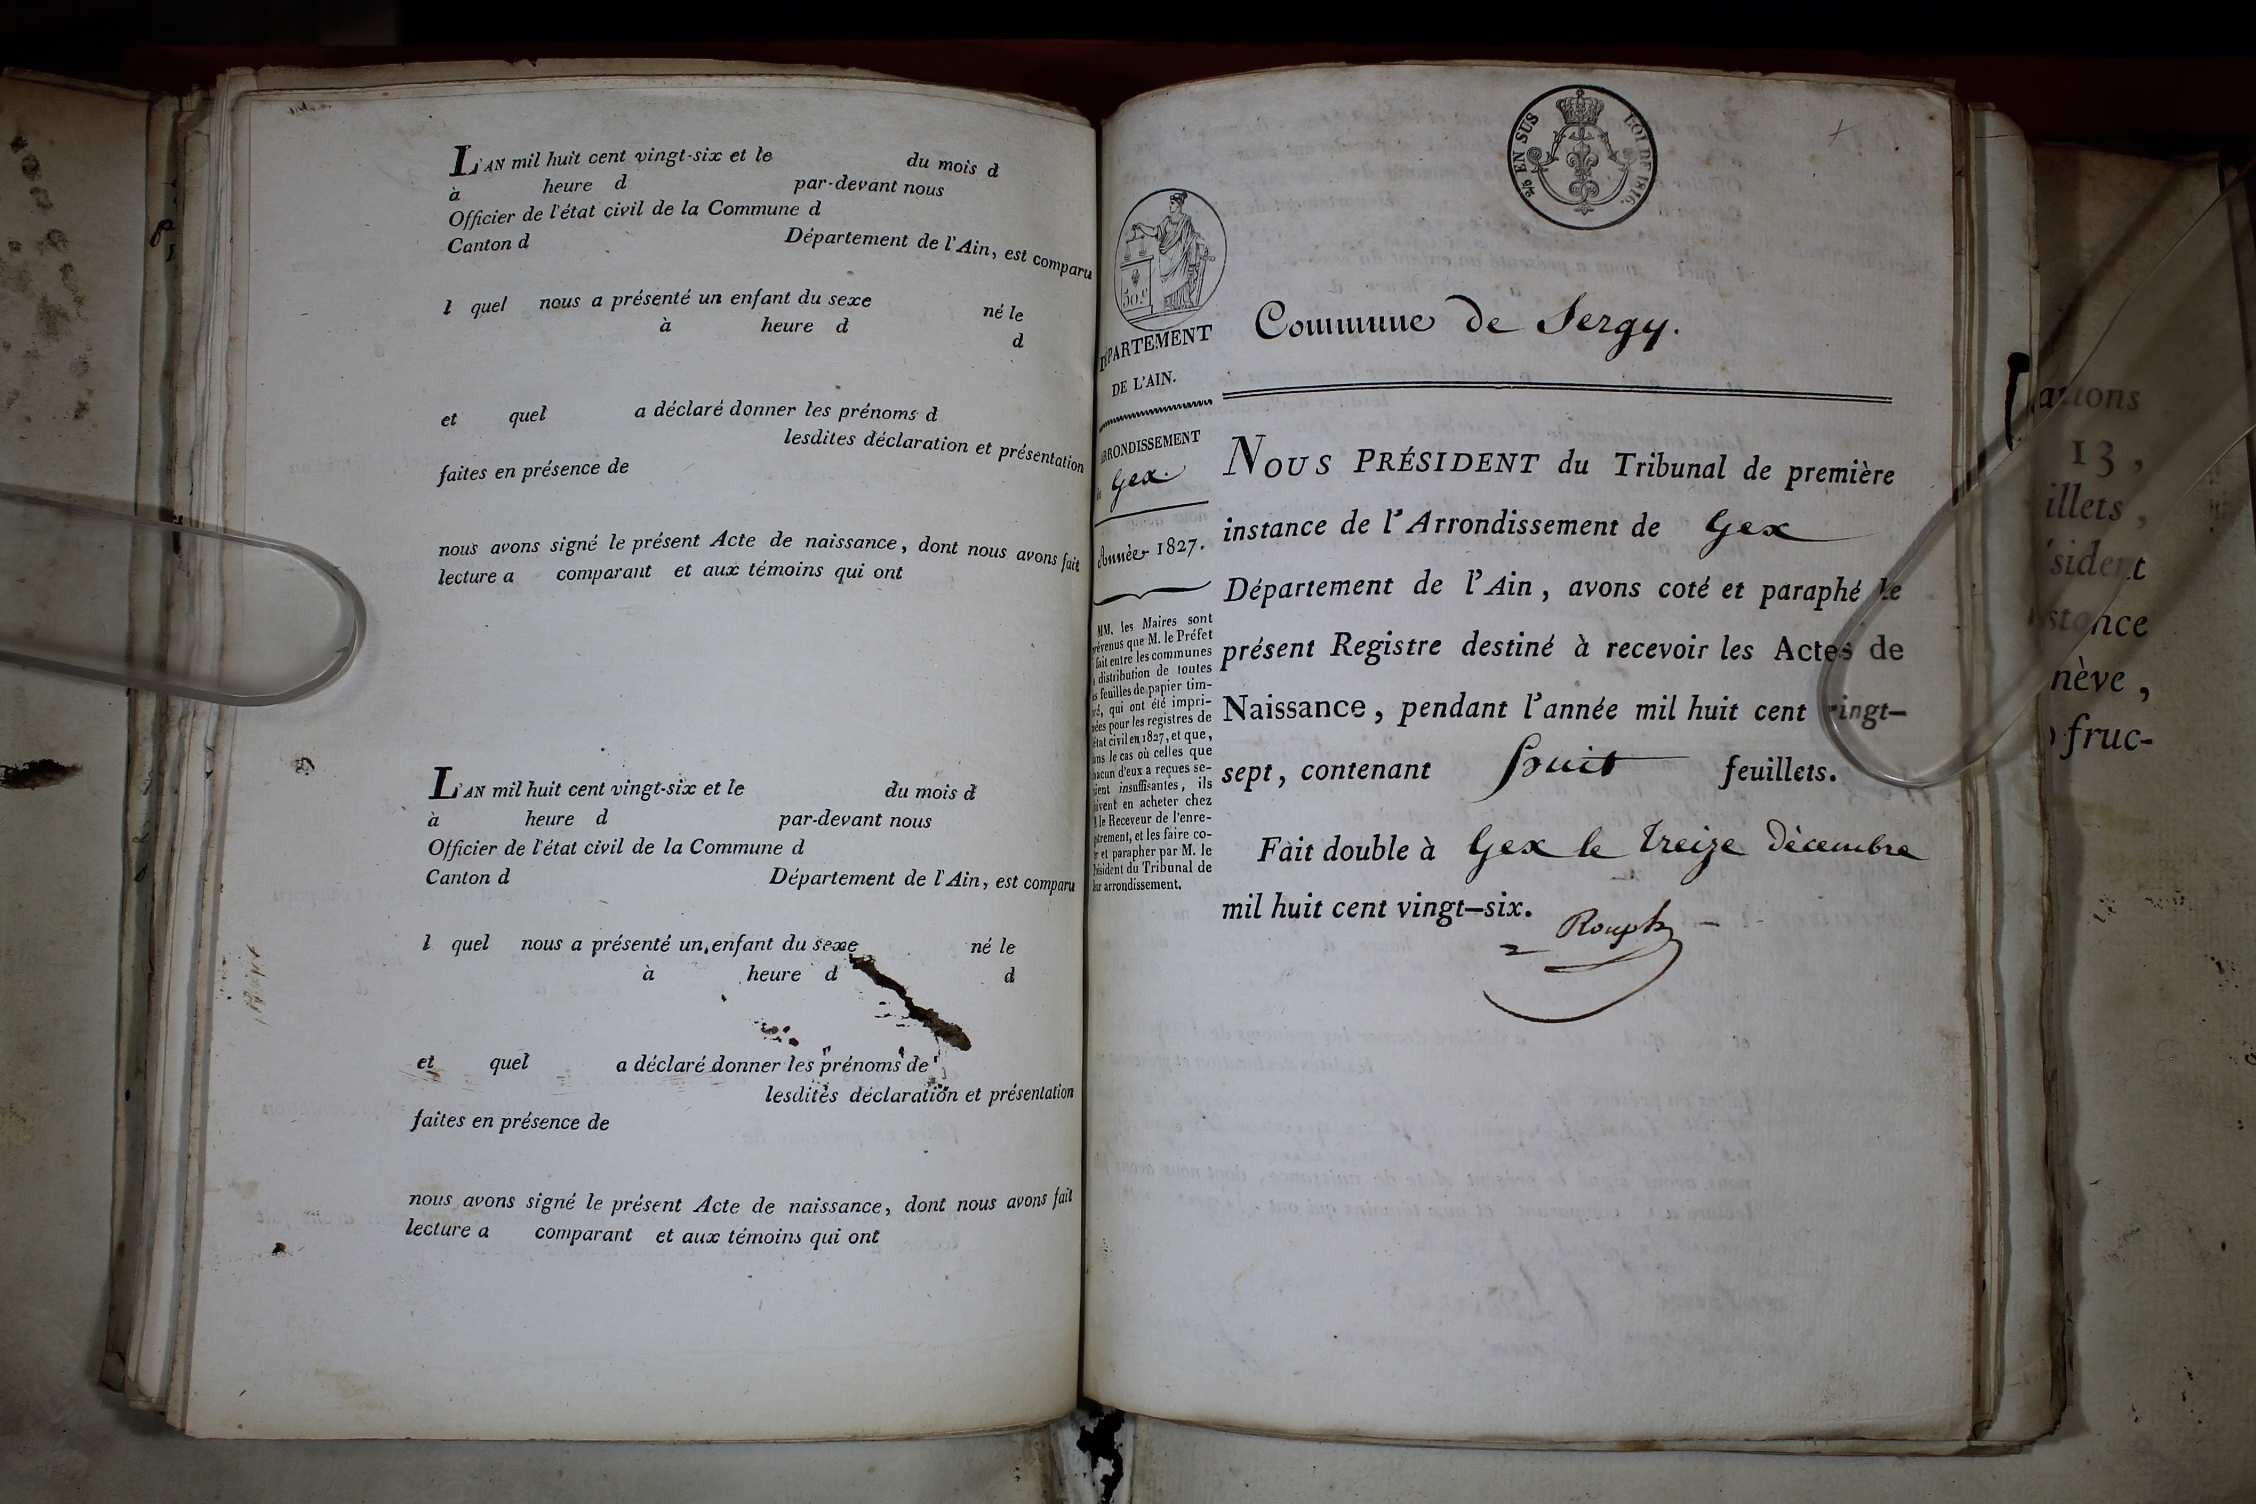 L'AN mil huit cent vingt-six et le du mois d
à heure d par-devant nous
Officier de l'état civil de la Commune d
Canton d Département de l'Ain, est comparu
l quel nous a présenté un enfant du sexe né le
à heure d
d
et quel a déclaré donner les prénoms d
lesdites déclaration et présentation
faites en présence de
nous avons signé le présent Acte de naissance, dont nous avons fait
lecture a comparant et aux témoins qui ont
L'AN mil huit cent vingt-six et le du mois d
à heure d par-devant nous
Officier de l'état civil de la Commune d
Canton d Département de l'Ain, est comparu
l quel nous a présenté un enfant du sexe né le
à heure d d
et quel a déclaré donner les prénoms de
lesdites déclaration et présentation
faites en présence de
nous avons signé le présent Acte de naissance, dont nous avons fait
lecture a comparant et aux témoins qui ont
EN SUS LOI DE 1816.
50 c
DÉPARTEMENT
DE L'AIN.
ARRONDISSEMENT
Gex.
Année 1827.
MM. les Maires sont
prévenus que M. le Préfet
fait entre les communes
distribution de toutes
feuilles de papier tim-
bré, qui ont été impri-
mées pour les registres de
état civil en 1827, et que,
dans le cas où celles que
chacun d'eux a reçues se-
roient insuffisantes, ils
doivent en acheter chez
le Receveur de l'enre-
gistrement, et les faire co-
ter et parapher par M. le
Président du Tribunal de
leur arrondissement.
Commune de Sergy.
NOUS PRÉSIDENT du Tribunal de première
instance de l'Arrondissement de Gex
Département de l'Ain, avons coté et paraphé le
présent Registre destiné à recevoir les Actes de
Naissance, pendant l'année mil huit cent vingt-
sept, contenant huit feuillets.
Fait double à Gex le treize Décembre
mil huit cent vingt-six.
Rouph
ations
13,
illets,
sident
stance
nève,
fruc-